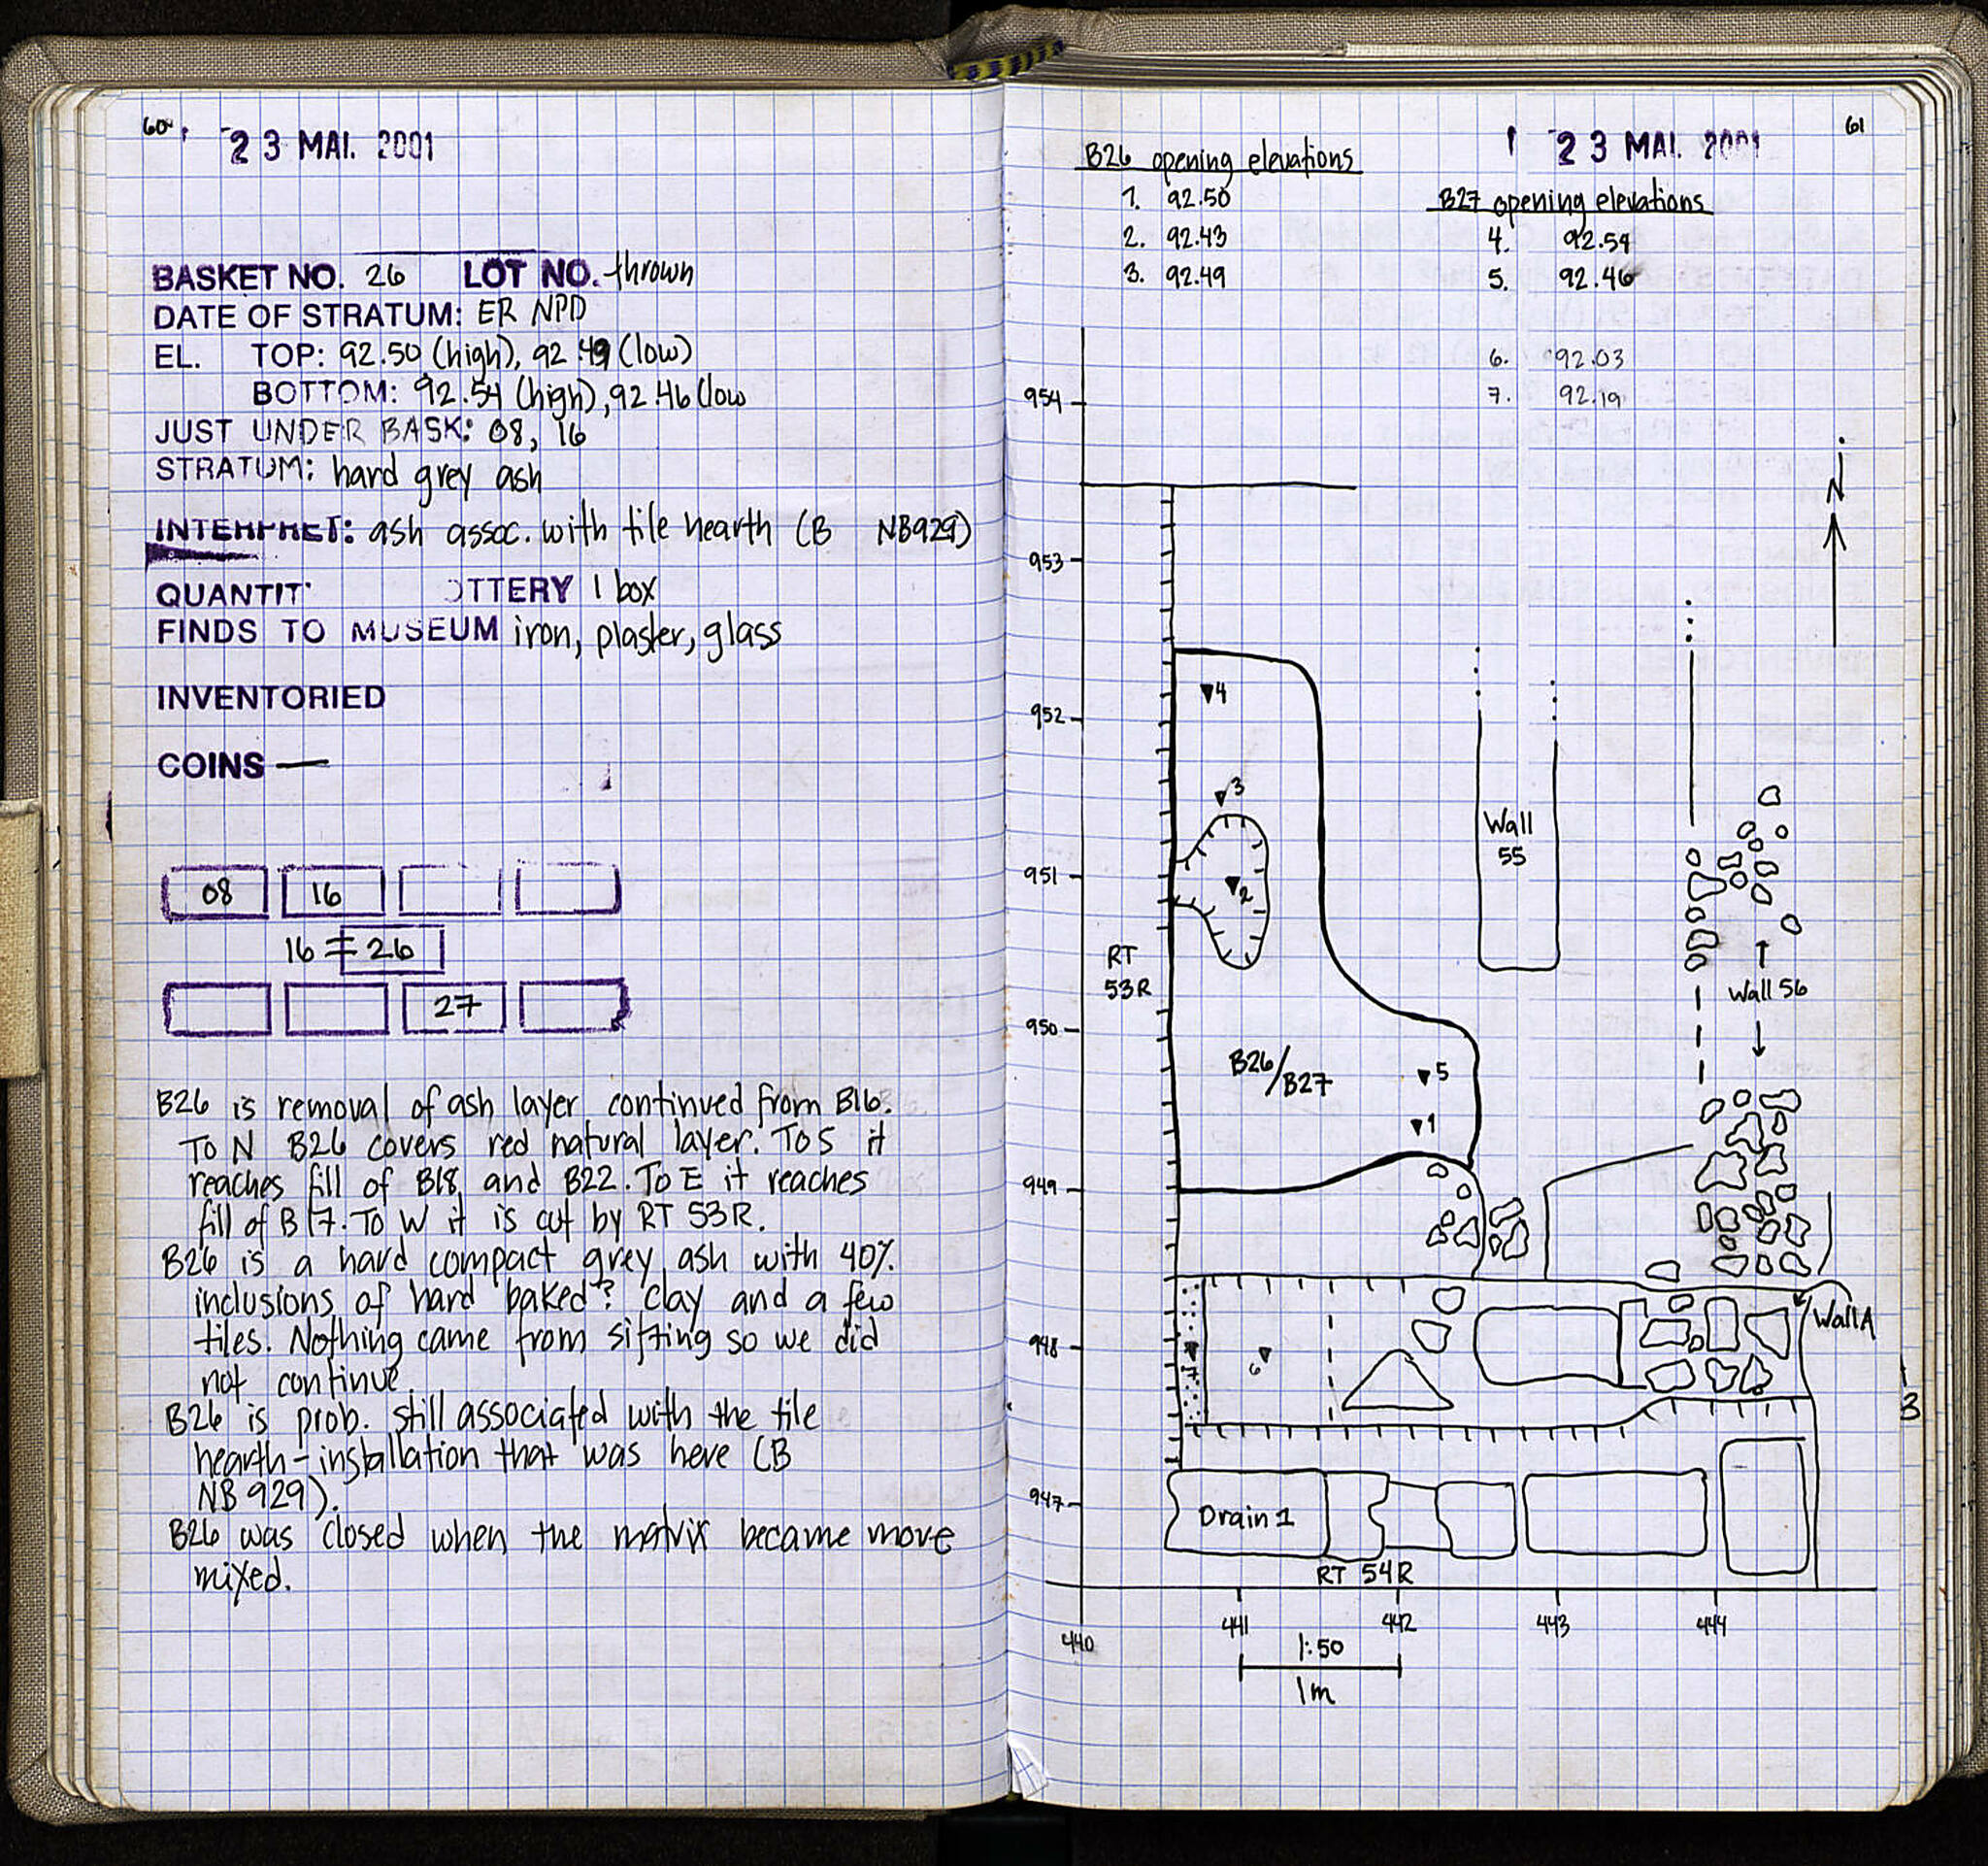 60
23 MAI. 2001
BASKET NO. 26 LOT NO. thrown
DATE OF STRATUM: ER NPD
EL. TOP: 92.50 (high), 92.49 (low)
BOTTOM: 92.54 (high), 92.46 (low
JUST UNDER BASK: 08, 16
STRATUM: hard grey ash
INTERPRET: ash assoc. with tile hearth (B NB929)
QUANTIT OTTERY 1 box
FINDS TO MUSEUM iron, plaster, glass
INVENTORIED
COINS —
08 16
16 = 26
27
B26 is removal of ash layer continued from B16.
To N B26 covers red natural layer. To S it
reaches fill of B18 and B22. To E it reaches
fill of B17. To W it is cut by RT 53R.
B26 is a hard compact grey ash with 40%
inclusions of hard baked? clay and a few
tiles. Nothing came from sifting so we did
not continue.
B26 is prob. still associated with the tile
hearth-installation that was here (B
NB 929).
B26 was closed when the matrix became more
mixed.
61
23 MAI. 2001
B26 opening elevations
1. 92.50
2. 92.43
3. 92.49
B27 opening elevations
4. 92.54
5. 92.46
6. 92.03
7. 92.19
954
953
952
951
950
949
948
947
N
4
3
2
Wall
55
RT
53R
Wall 56
B26/B27
5
1
Wall A
7
6
Drain 1
RT 54R
440
441
442
443
444
1:50
1m